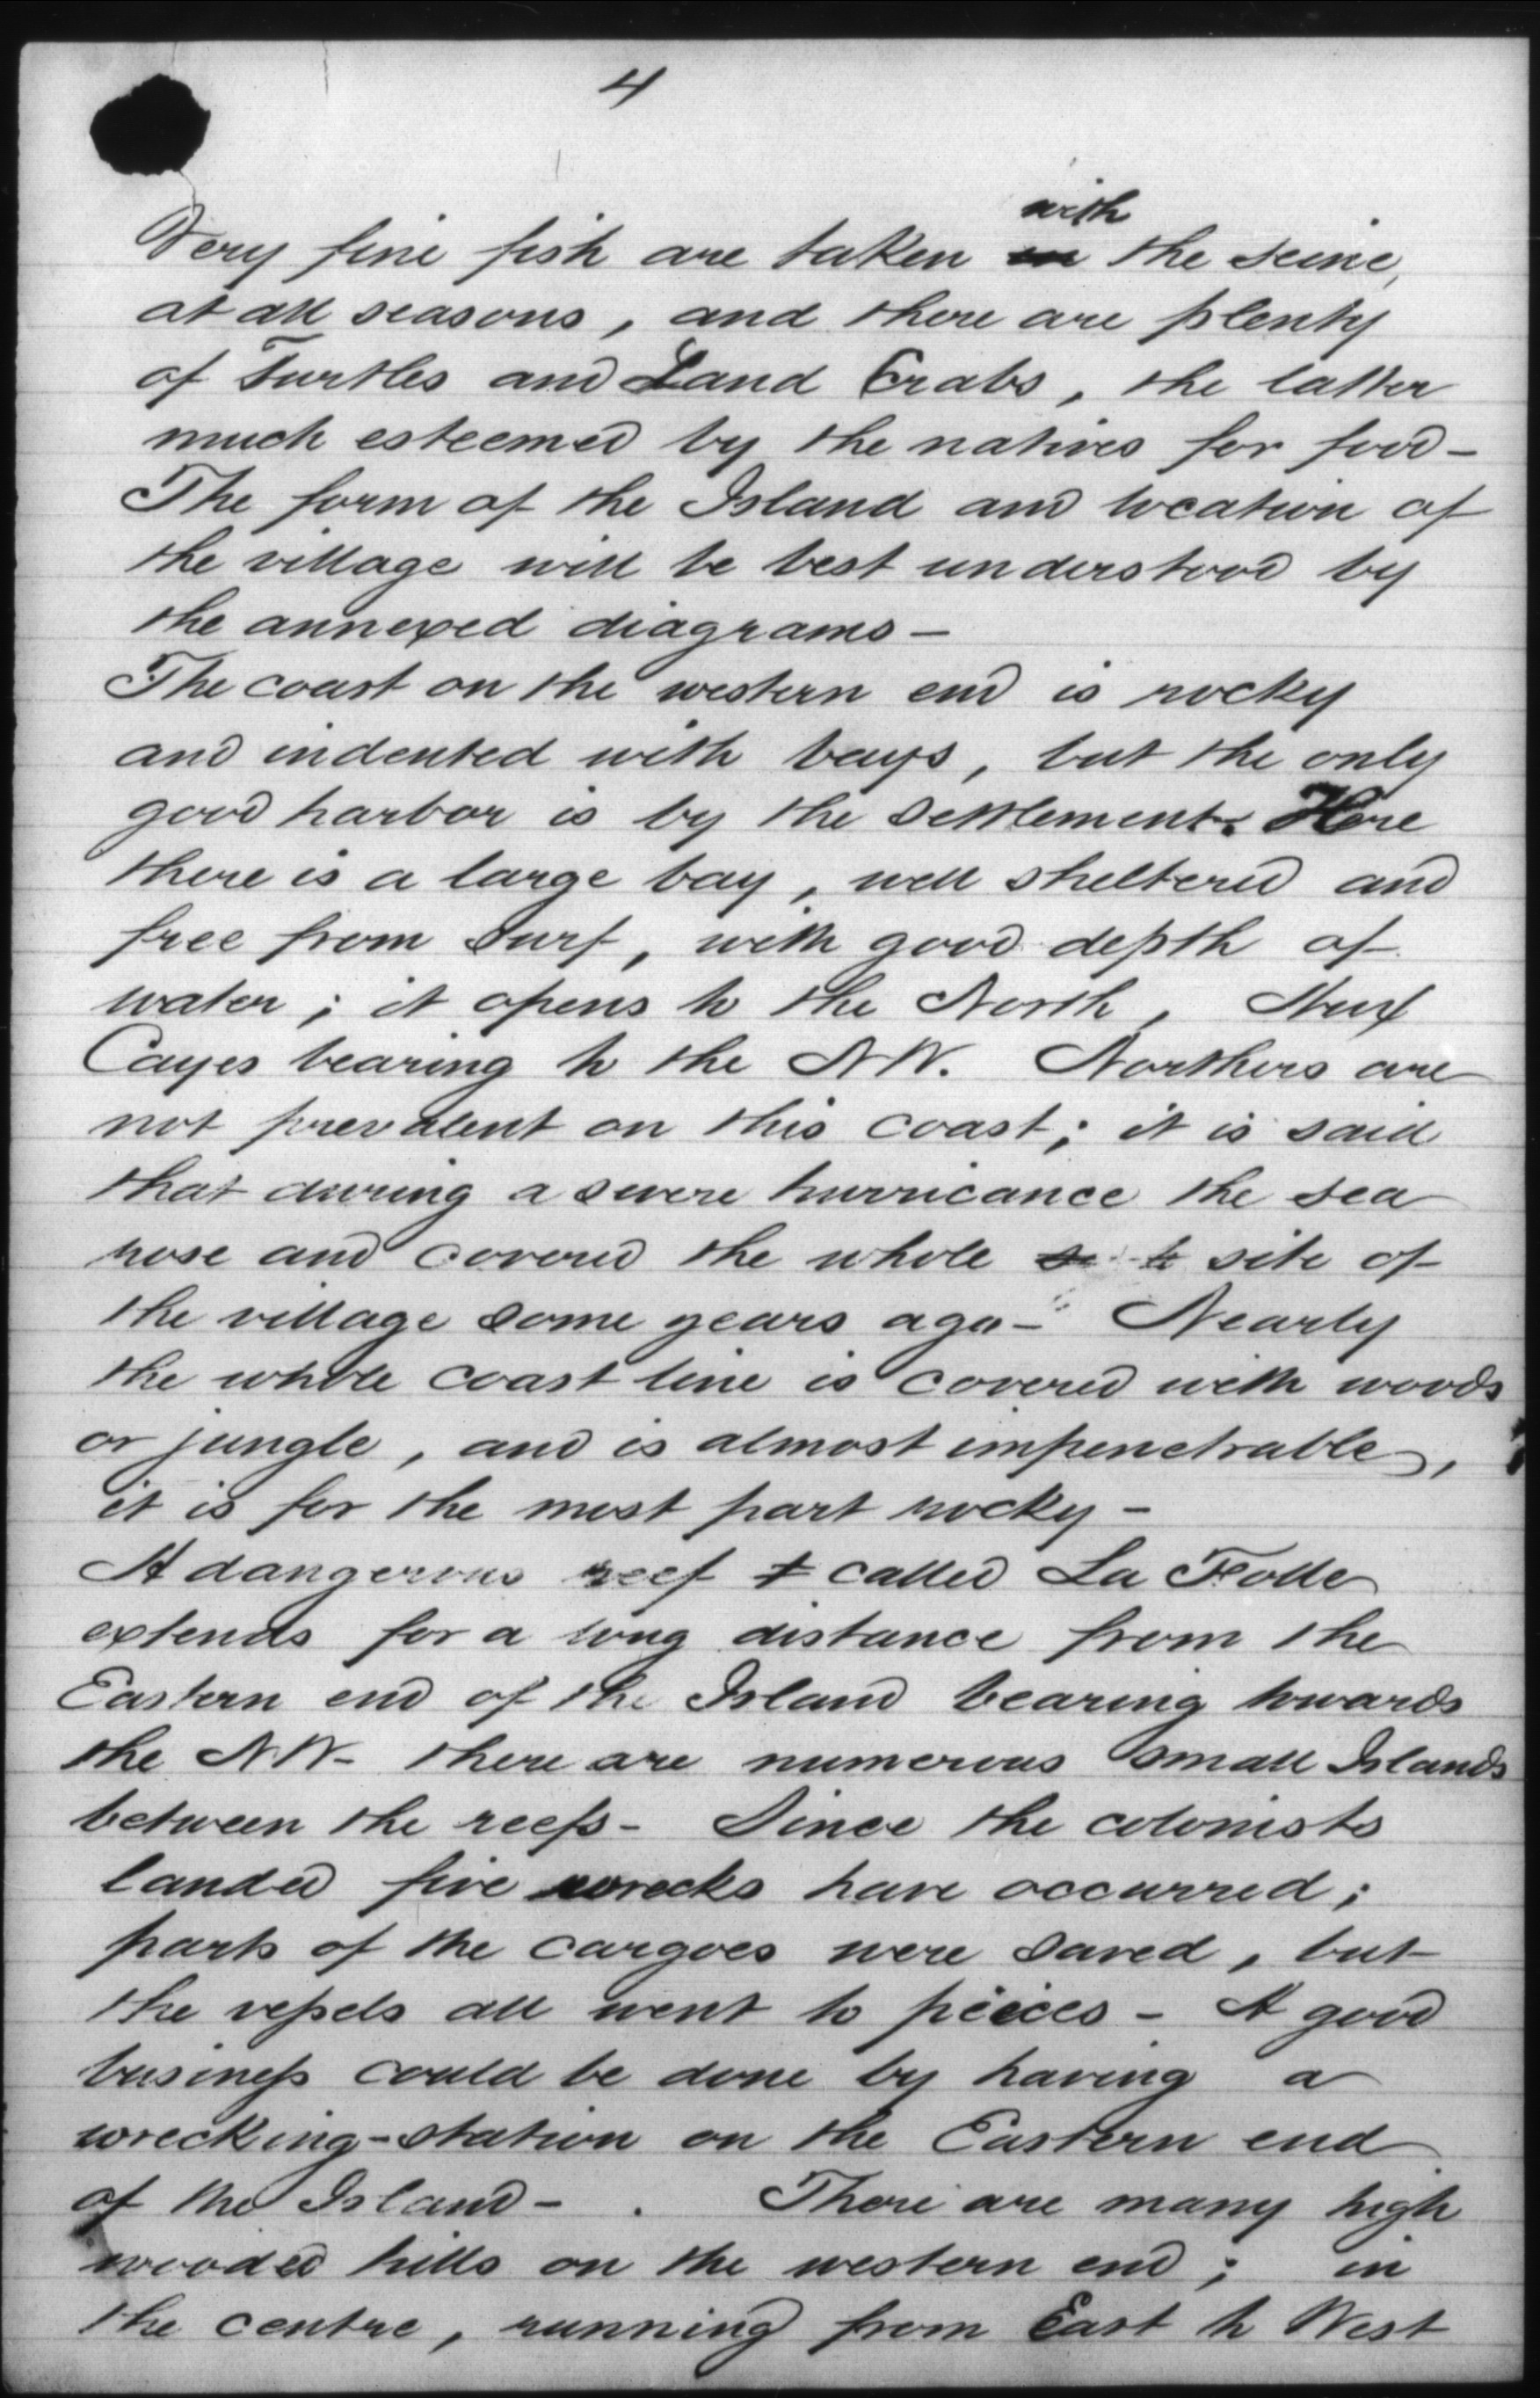 4
Very fine fish are taken with the seine,
at all seasons, and there are plenty
of Turtles and Land Crabs, the latter
much esteemed by the natives for food-
The form of the Island and location of
the village will be best understood by
the annexed diagrams-
The coast on the western end is rocky
and indented with bays, but the only
good harbor is by the settlement. Here
there is a large bay, well sheltered and
free from surf, with good depth of
water; it opens to the North,
Cayes bearing to the N.W. Northers are
not prevalent on this coast; it is said
that during a severe hurricance the sea
rose and covered the whole site of
the village some years ago- Nearly
the whole coast line is covered with woods
or jungle, and is almost impenetrable,
it is for the most part rocky-
A dangerous reef called La Folle
extends for a long distance from the
Eastern end of the Island bearing towards
the N.W- there are numerous small Islands
between the reefs- Since the colonists
landed five wrecks have occurred;
parts of the cargoes were saved, but
the vessels all went to pieices- A good
business could be done by having a
wrecking-station on the Eastern end
of the Island-. There are many high
wooded hills on the western end; in
the centre, running from East to West